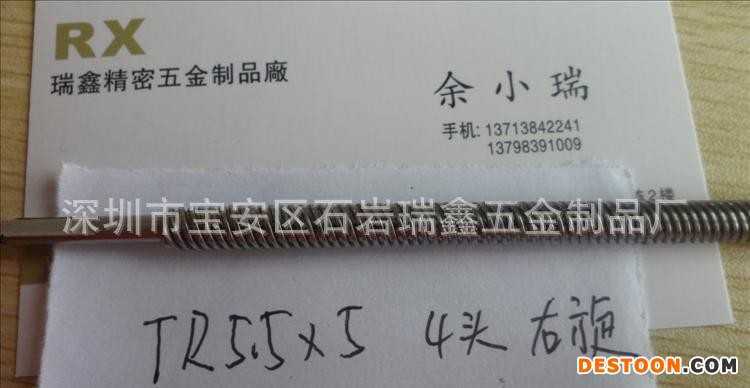 RX
瑞鑫精密五金制品廠
余小瑞
手机: 13713842241
13798391009
2楼
深圳市宝安区石岩瑞鑫五金制品厂
TR5.5×5 4头 右旋
DESTOON.COM